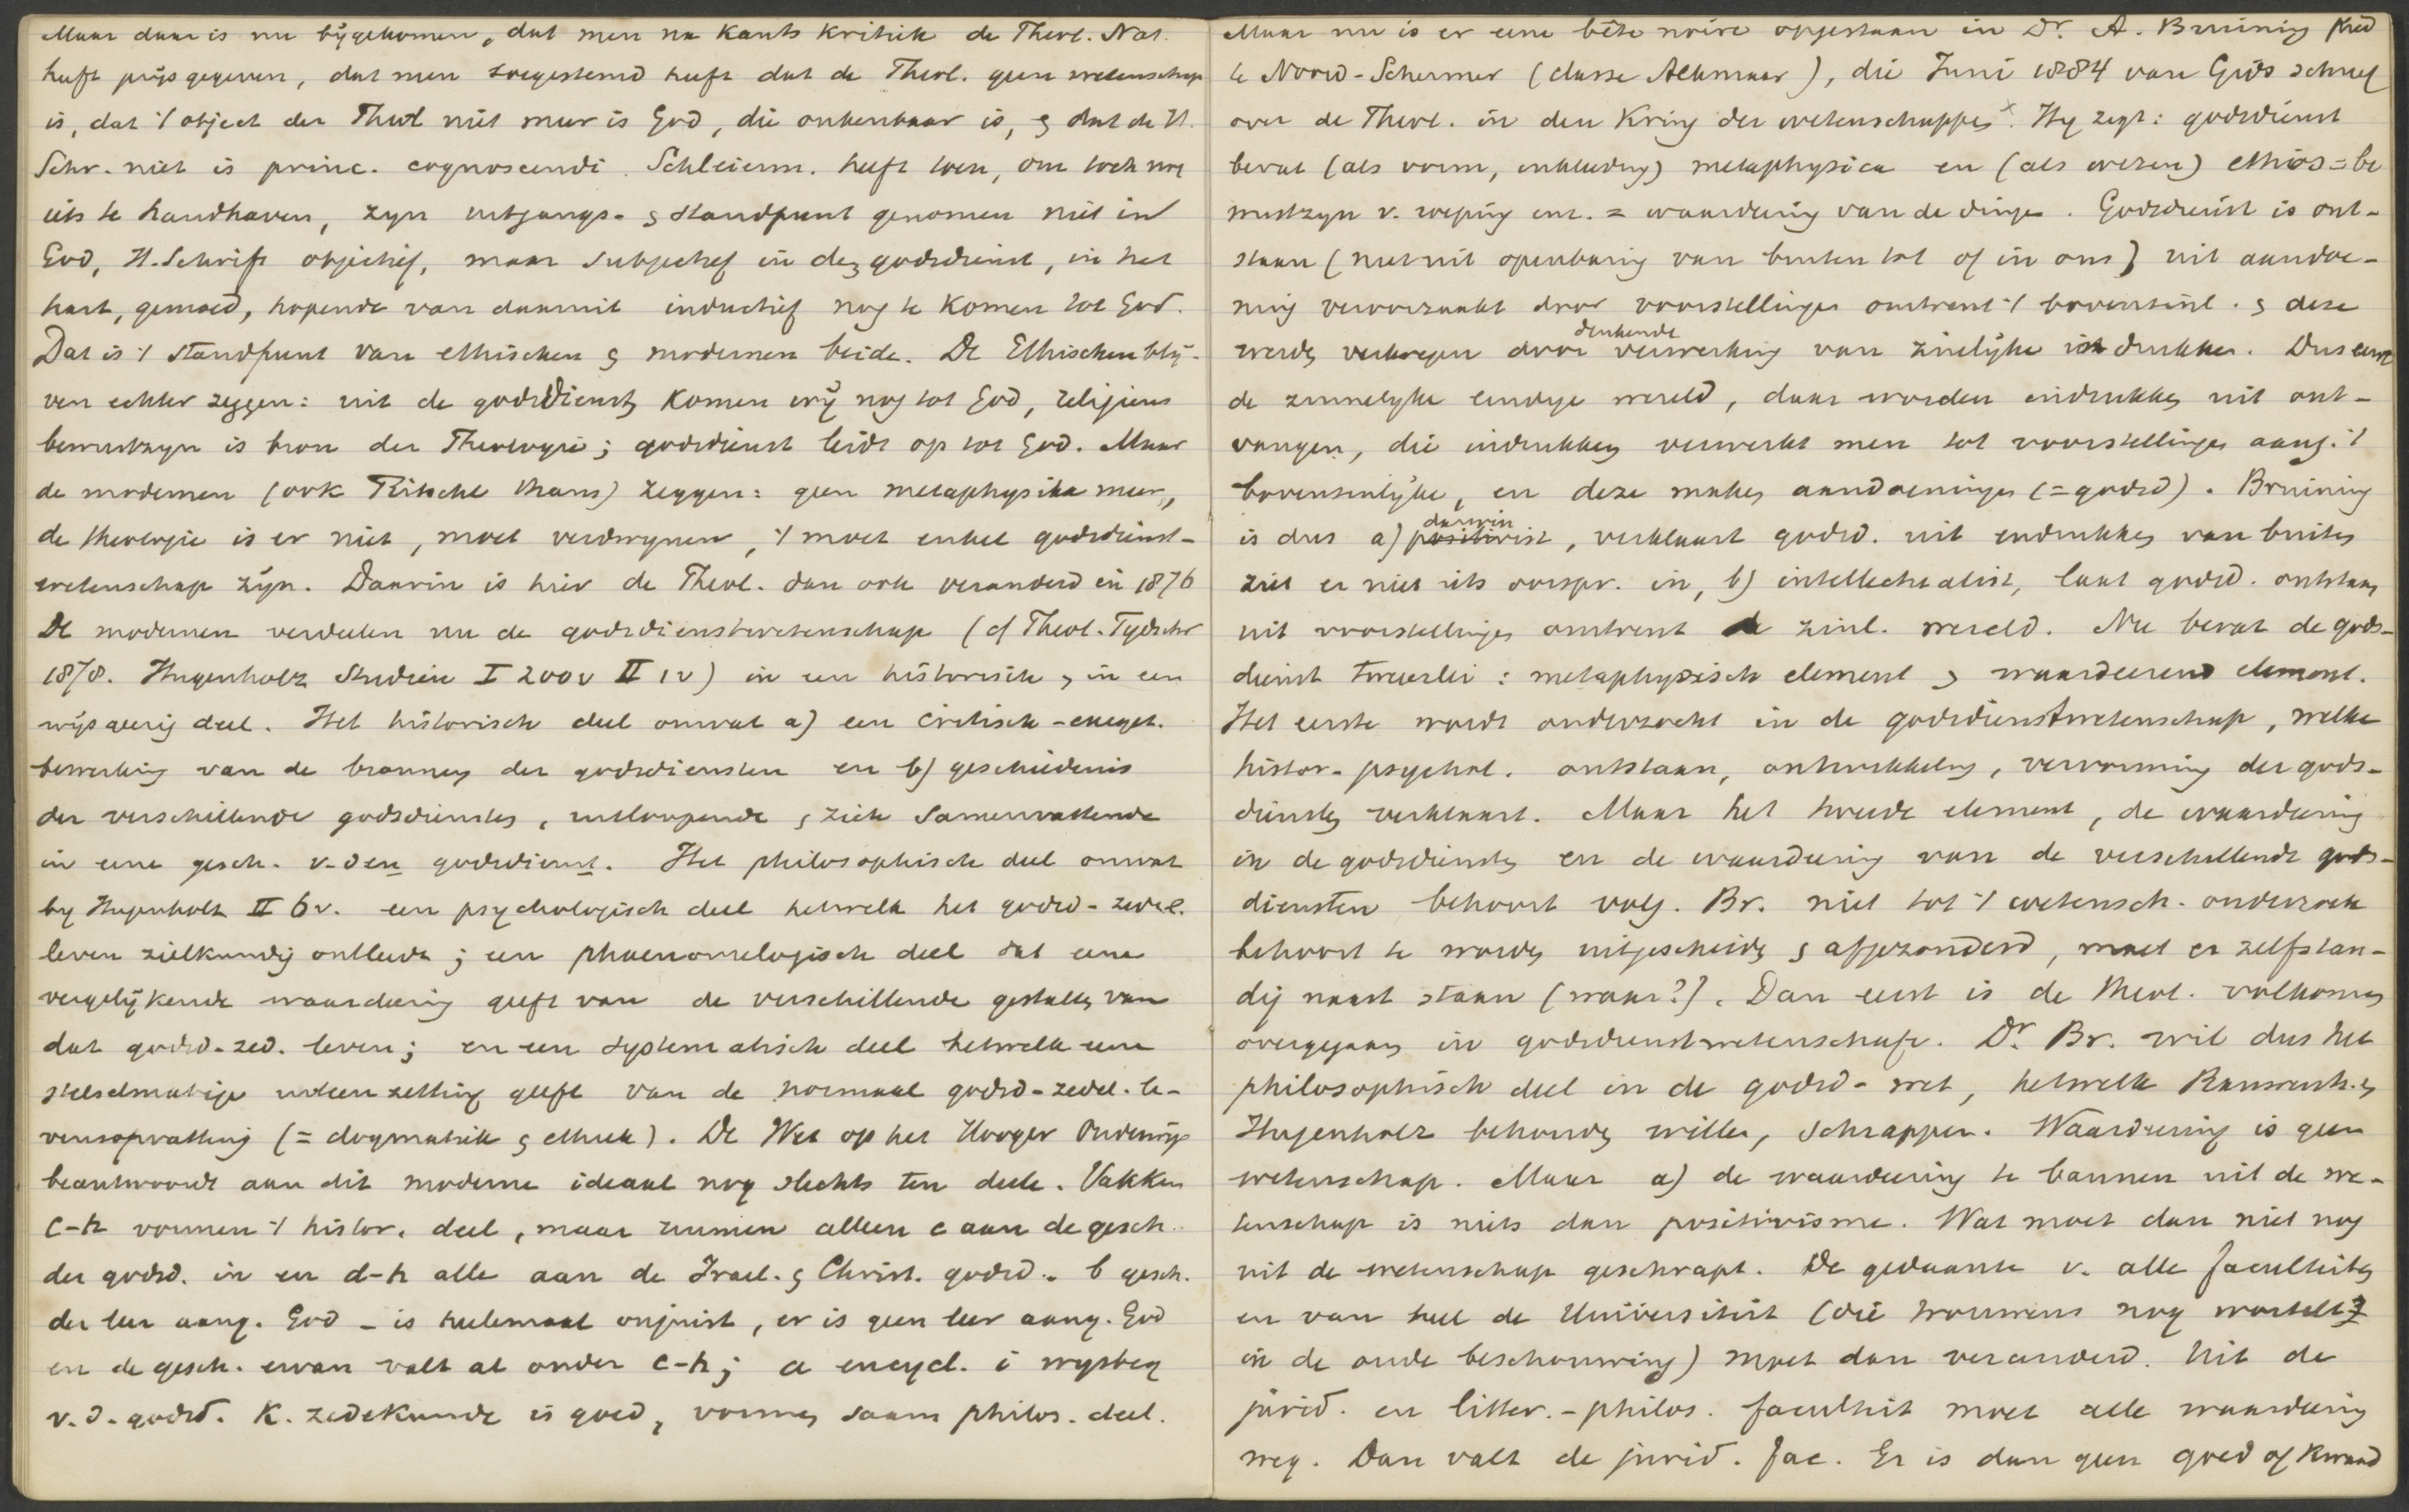 Maar daar is nu bygekomen, dat men na Kants Kritik de Theol. Nat.
heeft prijs gegeven, dat men toegestemd heeft dat de Theol. geen wetenschap
is, dat 't object der Theol niet meer is God, die onkenbaar is, & dat de H.
Schr. niet is princ. cognoscendi. Schleierm. heeft toen, om toch nog
iets te handhaven, zyn uitgangs- & standpunt genomen niet in
God, H. Schrift objectief, maar subjectief in den godsdienst, in het
hart, gemoed, hopende van daaruit inductief nog te komen tot God.
Dat is 't standpunt van ethischen & modernen beide. De Ethischen bly-
ven echter zeggen: uit de godsdienst komen wy nog tot God, religieus
bewustzyn is bron der Theologie; godsdienst leidt op tot God. Maar
de modernen (ook Ritschl thans) zeggen: geen metaphysika meer,
de theologie is er niet, moet verdwynen, 't moet enkel godsdienst-
wetenschap zyn. Daarin is hier de Theol. dan ook veranderd in 1876
De modernen verdeelen nu de godsdienstwetenschap (cf Theol. Tydschr
1878. Hugenholz Studien I 200v II 1v) in een historisch & in een
wijsgeerig deel. Het historisch deel omvat a) een critisch-exeget.
bewerking van de bronnen der godsdiensten en b) geschiedenis
der verschillende godsdiensten, uitloopende & zich samenvattende
in eene gesch. v. den godsdienst. Het philosophisch deel omvat
by Hugenholz II 6v. een psychologisch deel hetwelk het godsd-zedel.
leven zielkundig ontleedt; een phaenomelogisch deel dat eene
vergelykende waardeering geeft van de verschillende gestalten van
dat godsd-zed. leven; en een systematisch deel hetwelk eene
stelselmatige uiteenzetting geeft van de normaal godsd-zedel. le-
vensopvatting (= dogmatiek & ethiek). De Wet op het Hooger Onderwijs
beantwoordt aan dit moderne ideaal nog slechts ten deele. Vakken
c-h vormen 't histor. deel, maar ruimen alleen c aan de gesch.
der godsd. in en d-h alle aan de Israel. & Christ. godsd. b gesch.
der leer aang. God - is heelemaal onjuist, er is geen leer aang. God
en de gesch. ervan valt al onder c-h; a encycl. i wysbeg
v. d. godsd. K. zedekunde is goed, vormen saam philos. deel.
Maar nu is er eene bête noire opgestaan in Dr. A. Bruining pred
te Noord-Schermer (classe Alkmaar), die Juni 1884 van Gids schreef
over de Theol. in den Kring der wetenschappen x. Hy zegt: godsdienst
bevat (als vorm, inkleeding) metaphysica en (als wezen) ethos = be
wustzyn v. roeping enz. = waardering van de dingen. Godsdienst is ont-
staan (niet uit openbaring van buiten tot of in ons) uit aandoe-
ning veroorzaakt door voorstellingen omtrent 't bovenzinl. & deze
werden verkregen door denkende verwerking van zinlyke indrukken. Dus eerst
de zinnelyke eindige wereld, daar worden indrukken uit ont-
vangen, die indrukken verwerkt men tot voorstellingen aang. 't
bovenzinlyke, en deze maken aandoeningen (= godsd). Bruining
is dus a) darwinist, verklaart godsd. uit indrukken van buiten
ziet er niet iets oorspr. in, b) intellectualist, laat godsd. ontstaan
uit voorstellingen omtrent de zinl. wereld. Nu bevat de gods-
dienst tweeerlei: metaphysisch element & waardeerend element.
Het eerste wordt onderzocht in de godsdienstwetenschap, welke
histor-psychol. ontstaan, ontwikkeling, vervorming der gods-
diensten verklaart. Maar het tweede element, de waardeering
in de godsdiensten en de waardeering van de verschillende gods-
diensten behoort volg. Br. niet tot 't wetensch. onderzoek
behoort te worden uitgescheiden & afgezonderd, moet er zelfstan-
dig naast staan (waar?). Dan eerst is de theol. volkomen
overgegaan in godsdienstwetenschap. Dr. Br. wil dus het
philosophisch deel in de godsd-wet, hetwelk Rauwenh. &
Hugenholz behouden willen, schrappen. Waardeering is geen
wetenschap. Maar a) de waardeering te bannen uit de we-
tenschap is niets dan positivisme. Wat moet dan niet nog
uit de wetenschap geschrapt. De gedaante v. alle faculteiten
en van heel de Universiteit (die trouwens nog wortelt
in de oude beschouwing) moet dan veranderd. Uit de
jurid. en litter.-philos. faculteit moet alle waardeering
weg. Dan valt de jurid. fac. Er is dan geen goed of kwaad